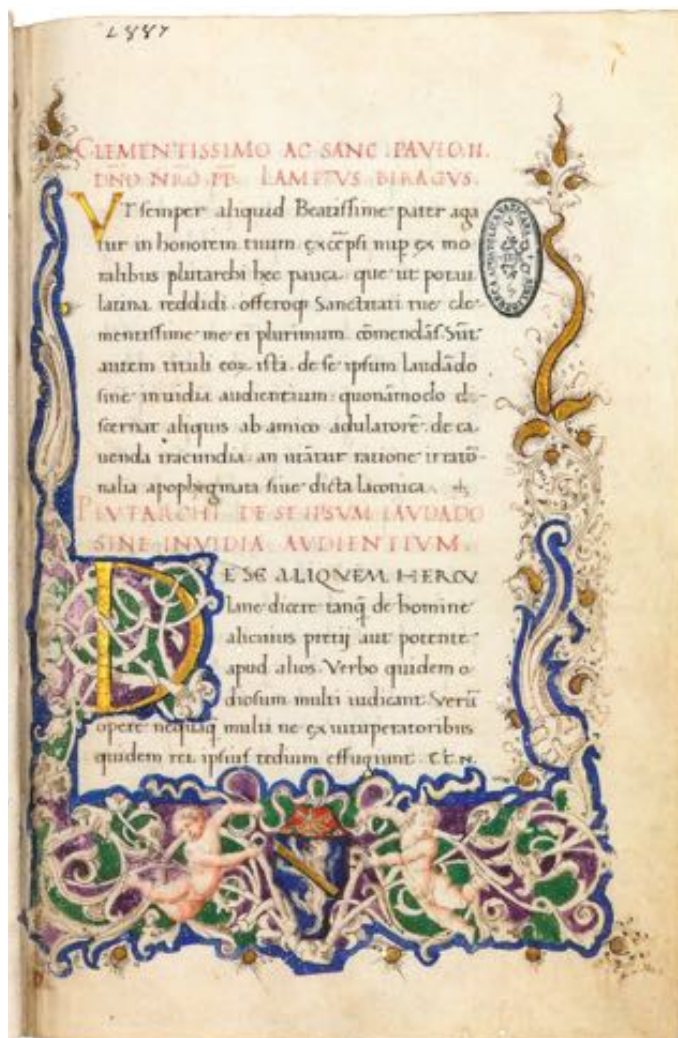 L 887
CLEMENTISSIMO AC SANC. PAVLO. II.
DNO NRO. PP. LAMPVS BIRAGVS.
VT semper aliquid Beatissime pater aga
tur in honorem tuum excepsi nup ex mo
ralibus plutarchi hec pauca que ut potui
latina reddidi. offeroq Sanctitati tue cle
mentissime me ei plurimum cōmendās. Sūt
autem tituli eoꝝ isti. de se ipsum laudādo
sine inuidia audientium. quonāmodo di
scernat aliquis ab amico adulatorē. de ca
uenda iracundia. an utātur ratione irratō
nalia. apophegmata siue dicta laconica.
PLVTARCHI DE SE IPSVM LAVDADO
SINE INVIDIA AVDIENTIVM.
DE SE ALIQVEM HERCV
lane dicere tanq̄ de homine
alicuius pretij aut potente
apud alios. Verbo quidem o
diosum multi iudicant. Verū
opere nequaq̄ multi ne ex uituperatoribus
quidem rei ipsius tedium effugiunt.
BIBLIOTHECA APOSTOLICA VATICANA